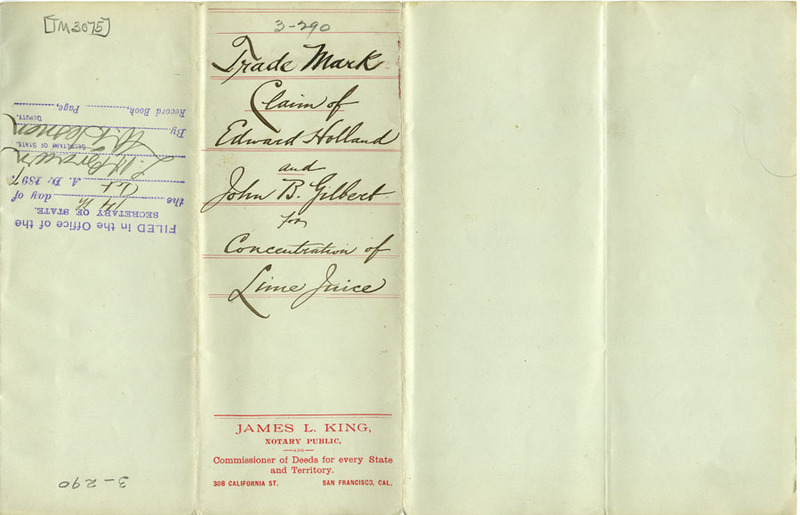 [TM3075]
3-290
Trade Mark
Claim of
Edward Holland
and
John B. Gilbert
for
Concentration of
Lime Juice
JAMES L. KING,
NOTARY PUBLIC,
—AND—
Commissioner of Deeds for every State
and Territory.
308 CALIFORNIA ST. SAN FRANCISCO, CAL.
FILED in the Office of the
SECRETARY OF STATE.
the 14th day of
Oct A. D. 1897
L. H. Brown
SECRETARY OF STATE.
By
DEPUTY.
Record Book, Page,
3-290